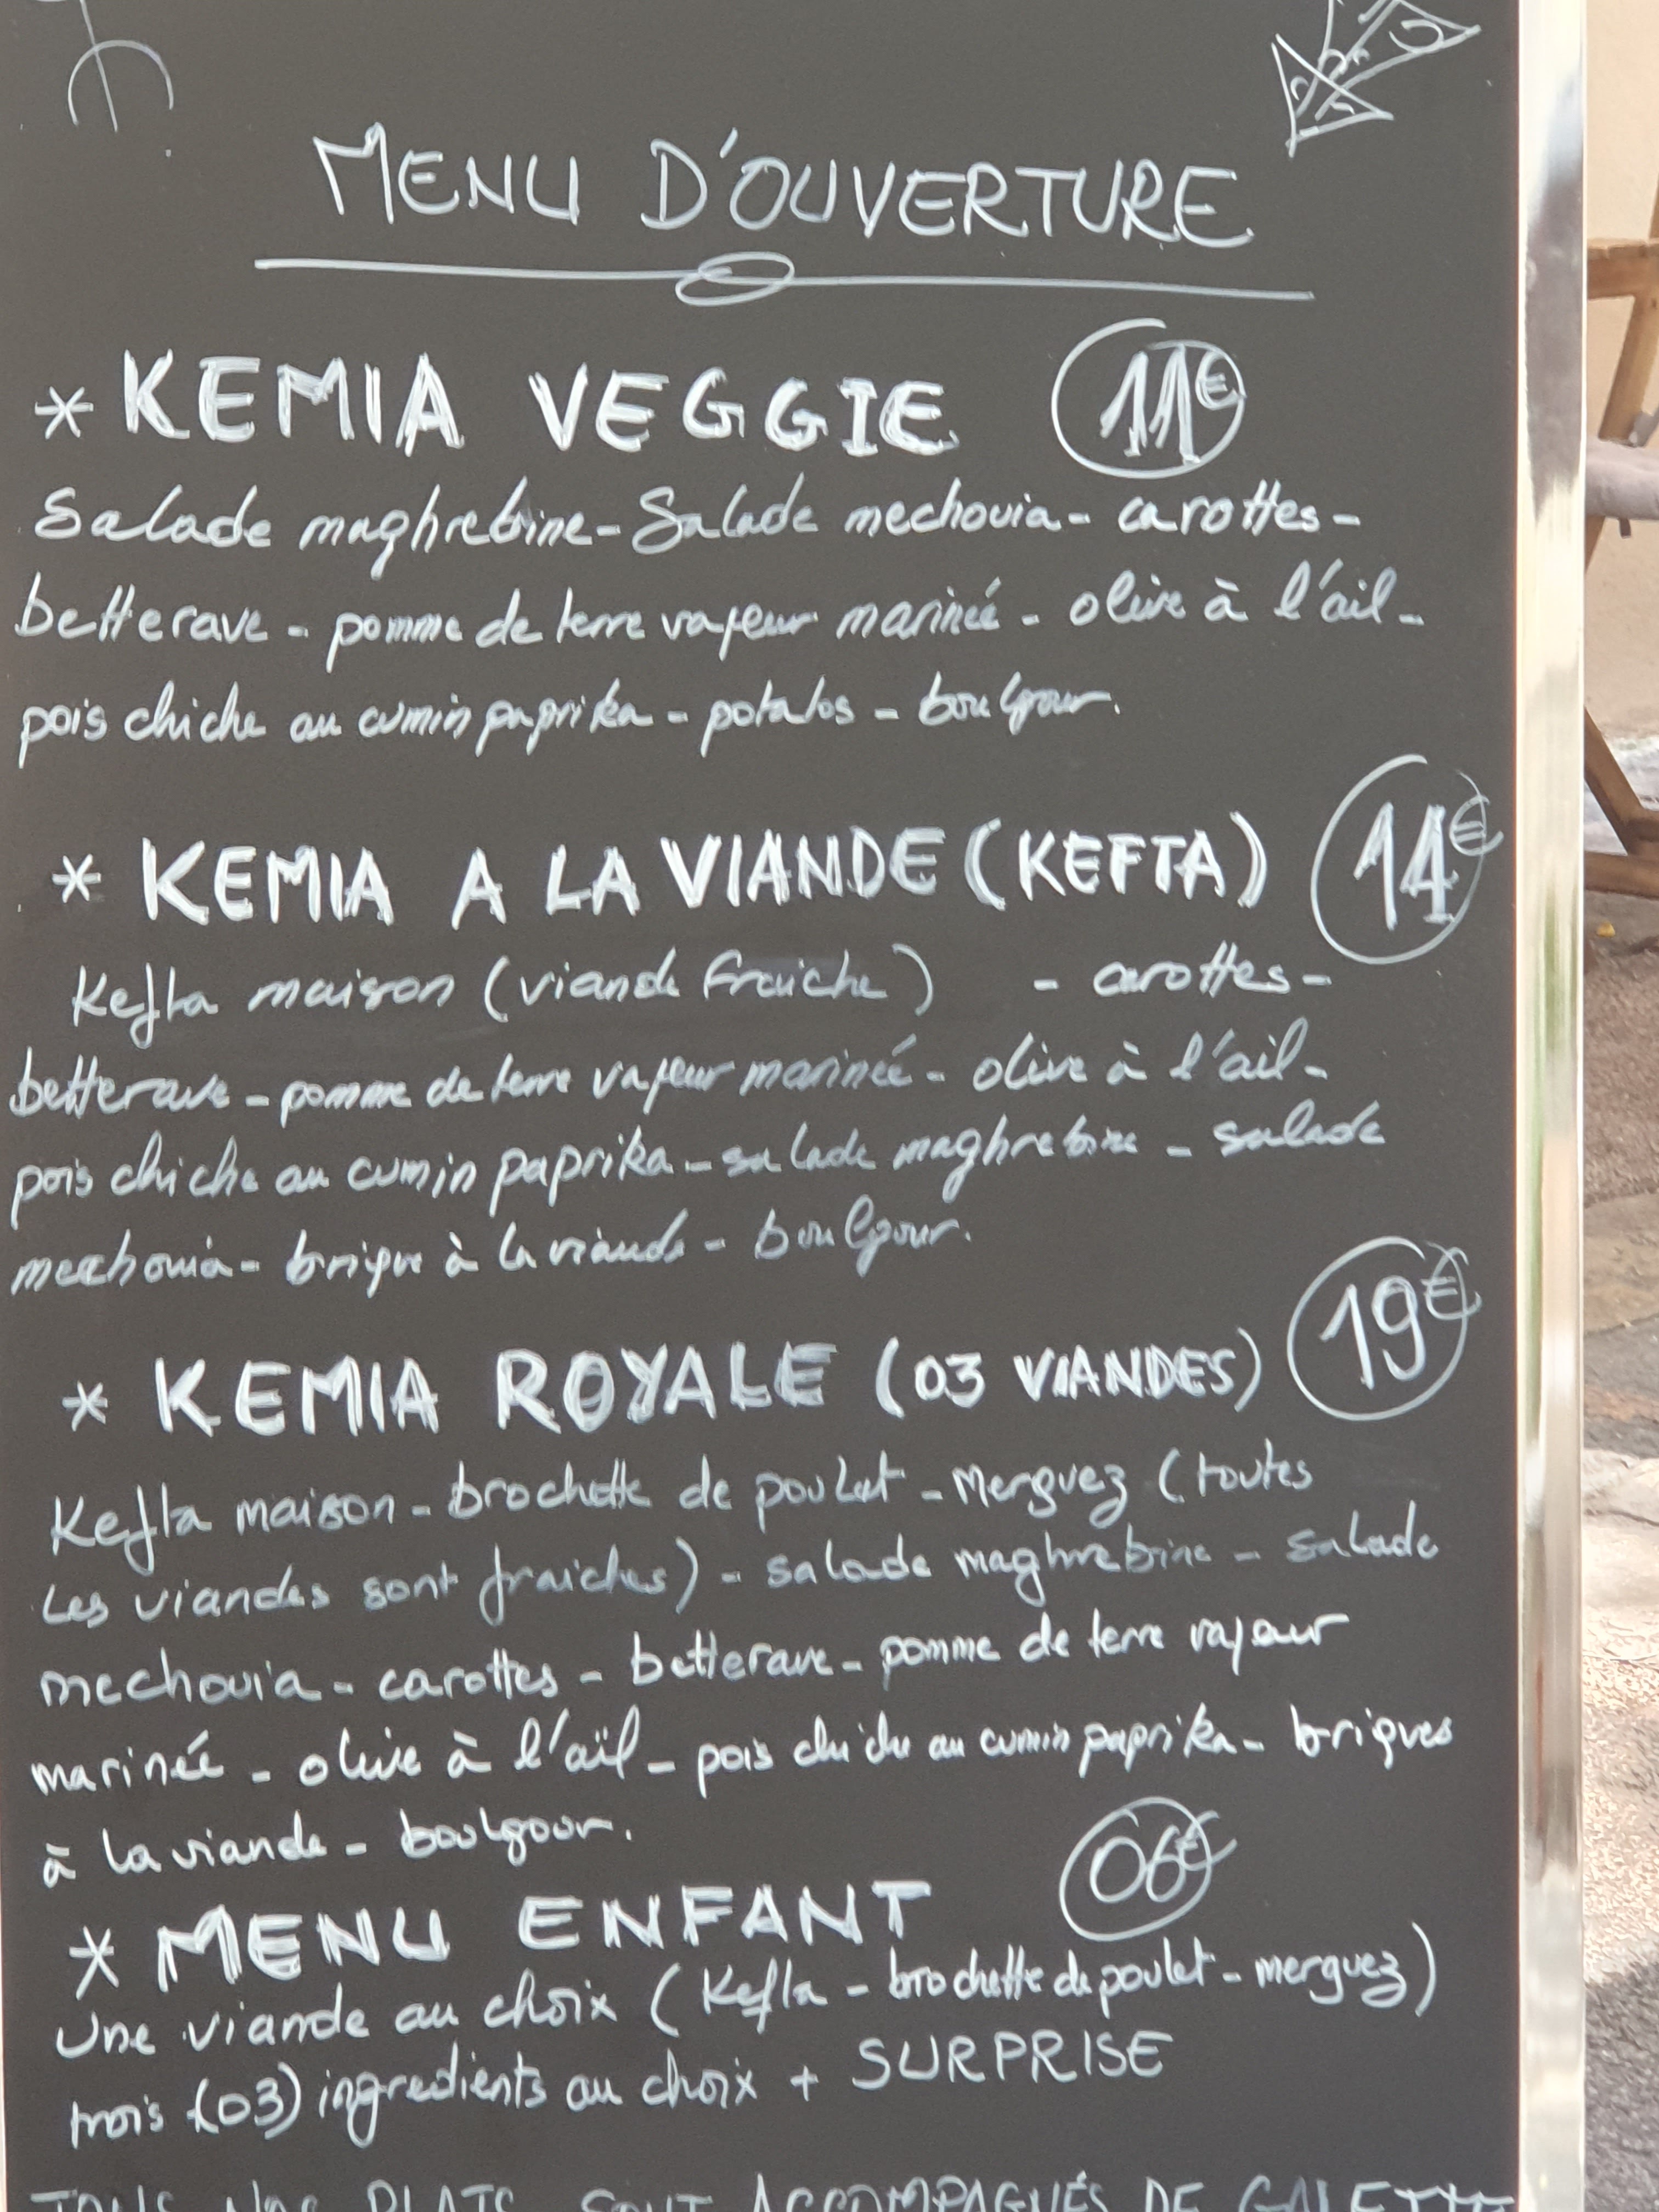 MENU D'OUVERTURE
* KEMIA VEGGIE 11€
Salade maghrebine - Salade mechouia - carottes -
betterave - pomme de terre vapeur marinée - olive à l'ail -
pois chiche au cumin paprika - potatos - boulgour.
* KEMIA A LA VIANDE (KEFTA) 14€
Kefta maison (viande fraiche) - carottes -
betterave - pomme de terre vapeur marineé - olive à l'ail -
pois chiche au cumin paprika - salade maghrebine - salade
mechouia - brique à la viande - boulgour.
* KEMIA ROYALE (03 VIANDES) 19€
Kefta maison - brochette de poulet - Merguez (toutes
les viandes sont fraiches) - salade maghrebine - salade
mechouia - carottes - betterave - pomme de terre vapeur
marinée - olive à l'aïl - pois chiche au cumin paprika - briques
à la viande - boulgour.
* MENU ENFANT 06€
Une viande au choix (Kefta - brochette de poulet - merguez)
trois (03) ingredients au choix + SURPRISE
TOUS NOS PLATS SONT ACCOMPAGNÉS DE GALETTE